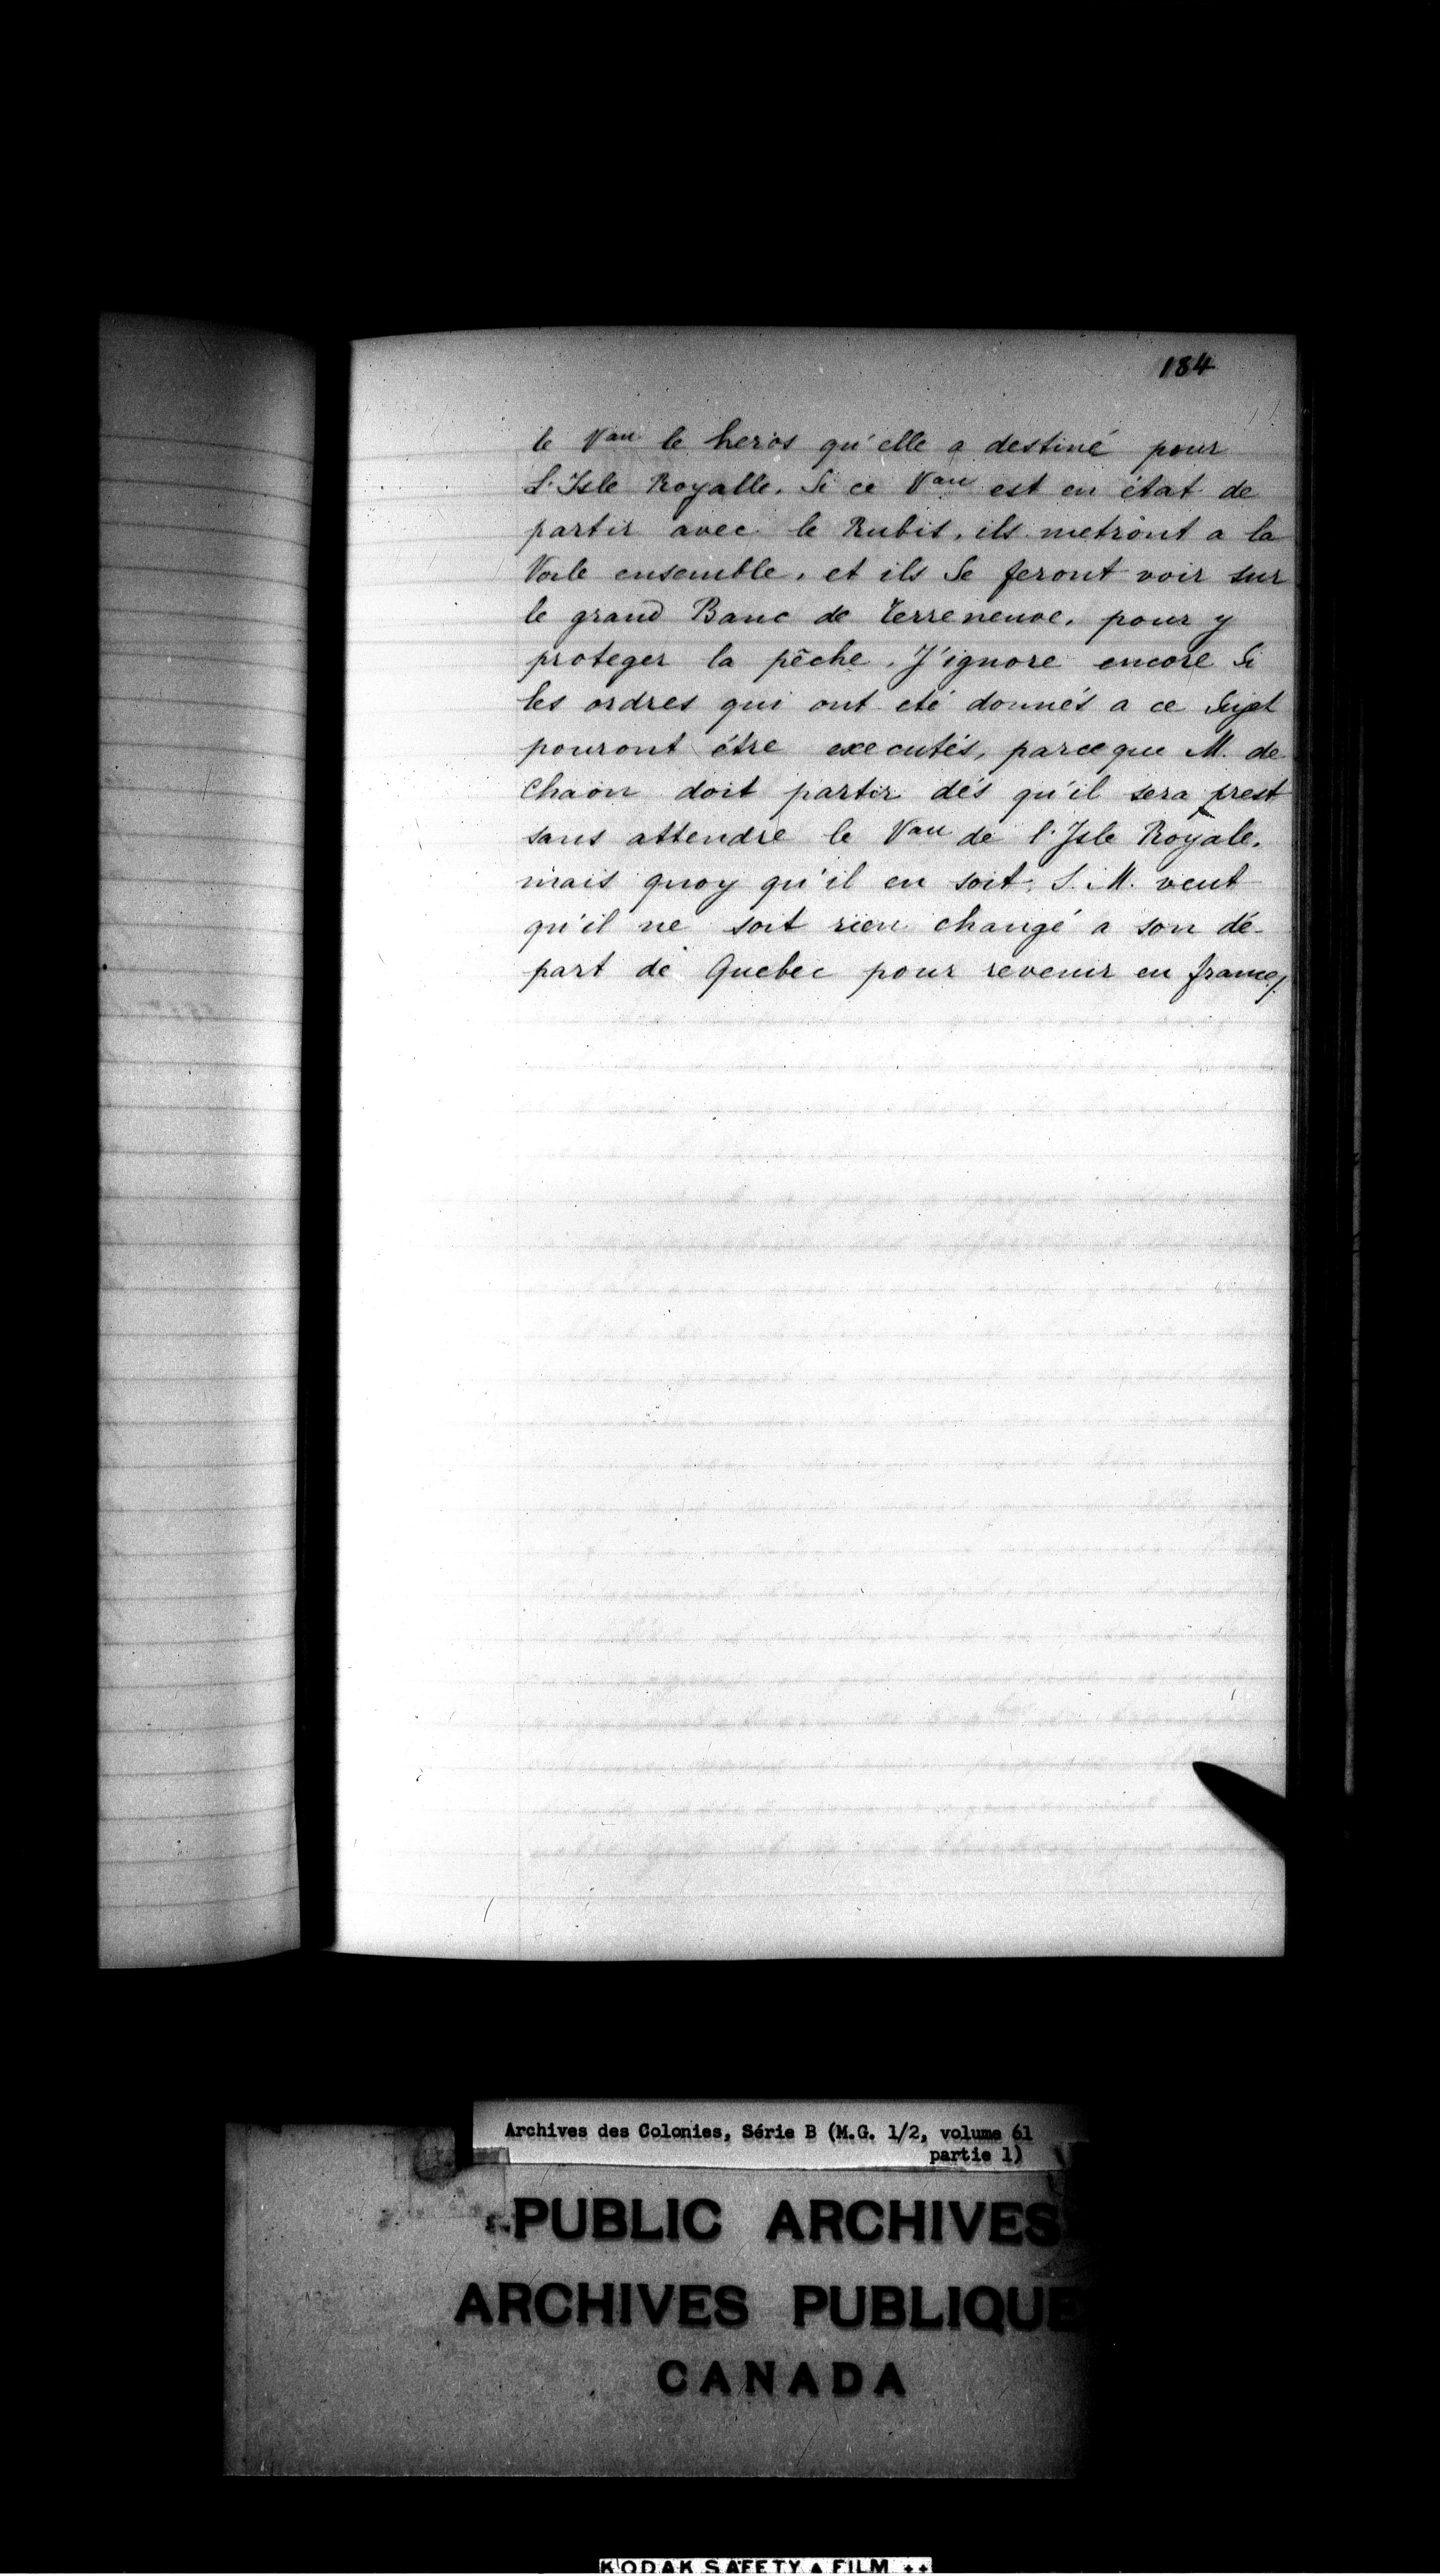 184
le Vau le heros qu'elle a destiné pour
L'Isle Royalle. Si ce Vau est en état de
partir avec le Rubis, ils metront a la
Voile ensemble, et ils Se feront voir sur
le grand Banc de terreneuve, pour y
proteger la pêche. J'ignore encore Si
les ordres qui ont eté donnés a ce Sujet
pouront étre executés, parceque M. de
Chaon doit partir dés qu'il sera prest
sans attendre le Vau de l'Isle Royale,
mais quoy qu'il en soit, S. M. veut
qu'il ne soit rien changé a son dé-
part de Quebec pour revenir en france/.
Archives des Colonies, Série B (M.G. 1/2, volume 61
partie 1)
PUBLIC ARCHIVES
ARCHIVES PUBLIQUE
CANADA
KODAK SAFETY ▲ FILM ++